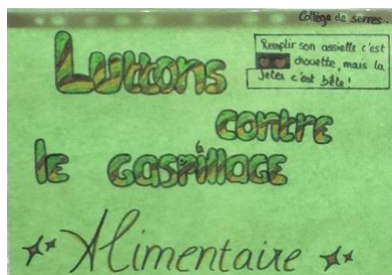 Collège de serres.
Remplir son assiette c'est
chouette, mais la
Jeter c'est bête!
Luttons
contre
le GASPILLAGE
Alimentaire